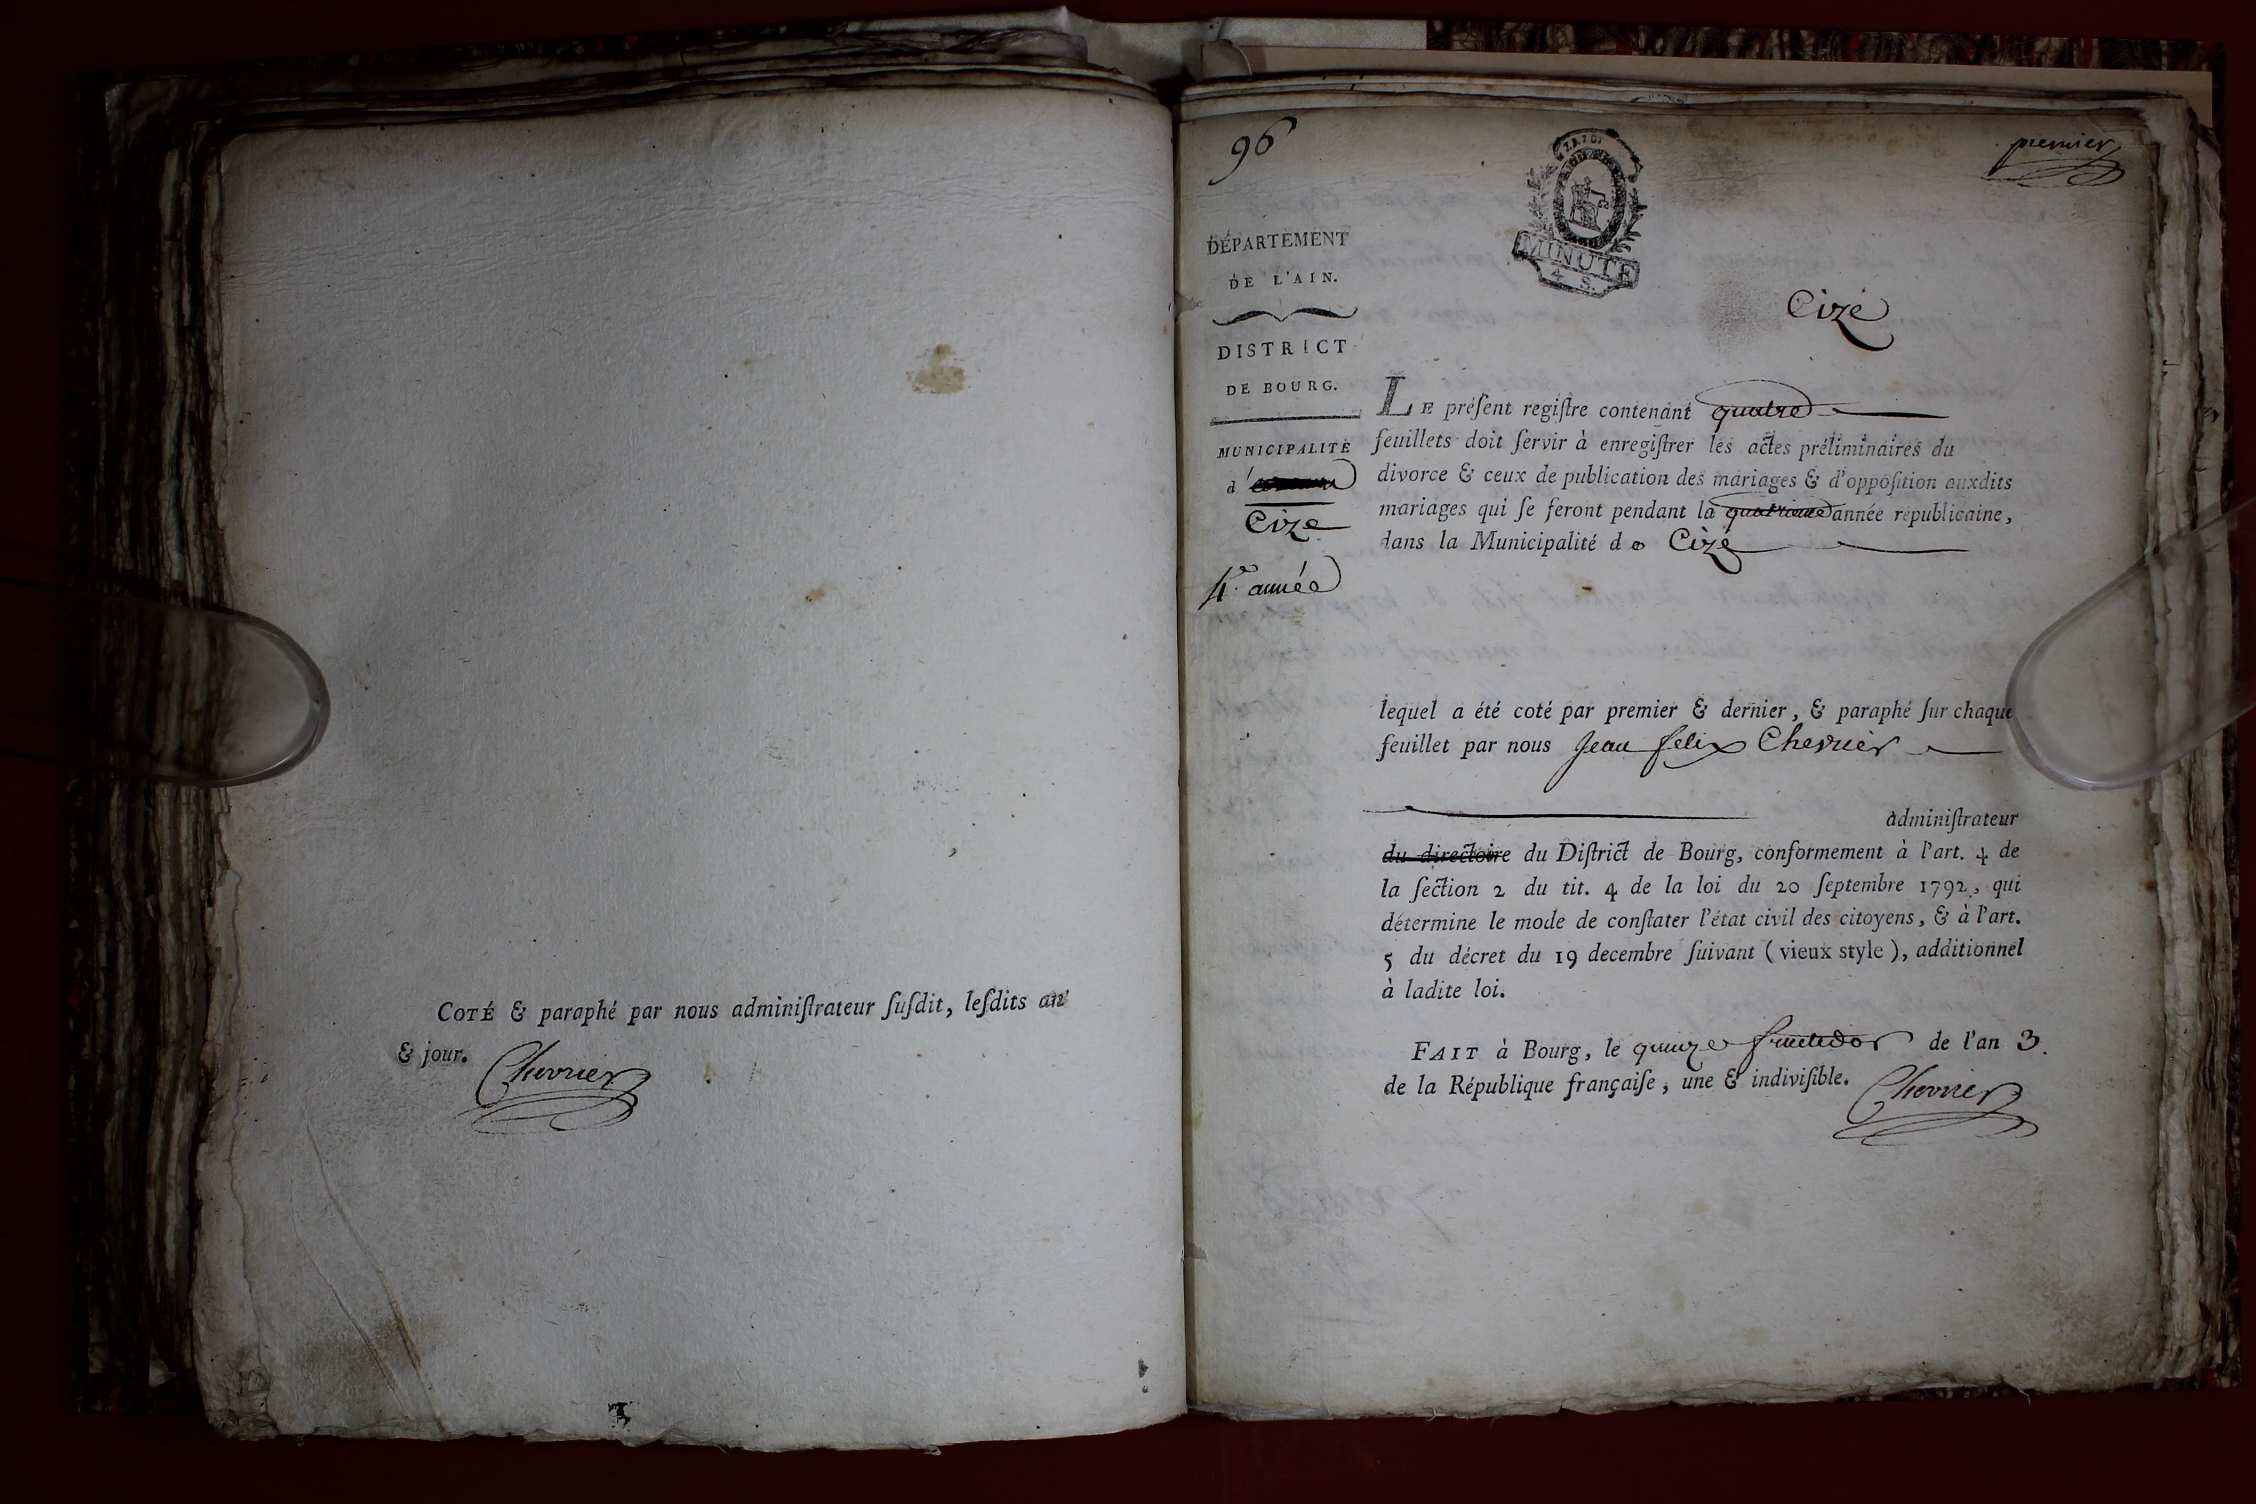 COTÉ & paraphé par nous adminiſtrateur ſuſdit, leſdits an
& jour. Chevrier
96
premier
MINUTE
4 S.
DÉPARTEMENT
DE L'AIN.
DISTRICT
DE BOURG.
MUNICIPALITÉ
d'
Cize
4.e année
Cizé
LE préſent regiſtre contenant quatre
feuillets doit ſervir à enregiſtrer les actes préliminaires du
divorce & ceux de publication des mariages & d'oppoſition auxdits
mariages qui ſe feront pendant la quatrieme année républicaine,
dans la Municipalité de Cizé
lequel a été coté par premier & dernier, & paraphé ſur chaque
feuillet par nous Jean felix Chevrier
adminiſtrateur
du directoire du Diſtrict de Bourg, conformement à l'art. 4 de
la ſection 2 du tit. 4 de la loi du 20 ſeptembre 1792, qui
détermine le mode de conſtater l'état civil des citoyens, & à l'art.
5 du décret du 19 decembre ſuivant (vieux style), additionnel
à ladite loi.
FAIT à Bourg, le quinze fructidor de l'an 3.
de la République françaiſe, une & indiviſible. Chevrier